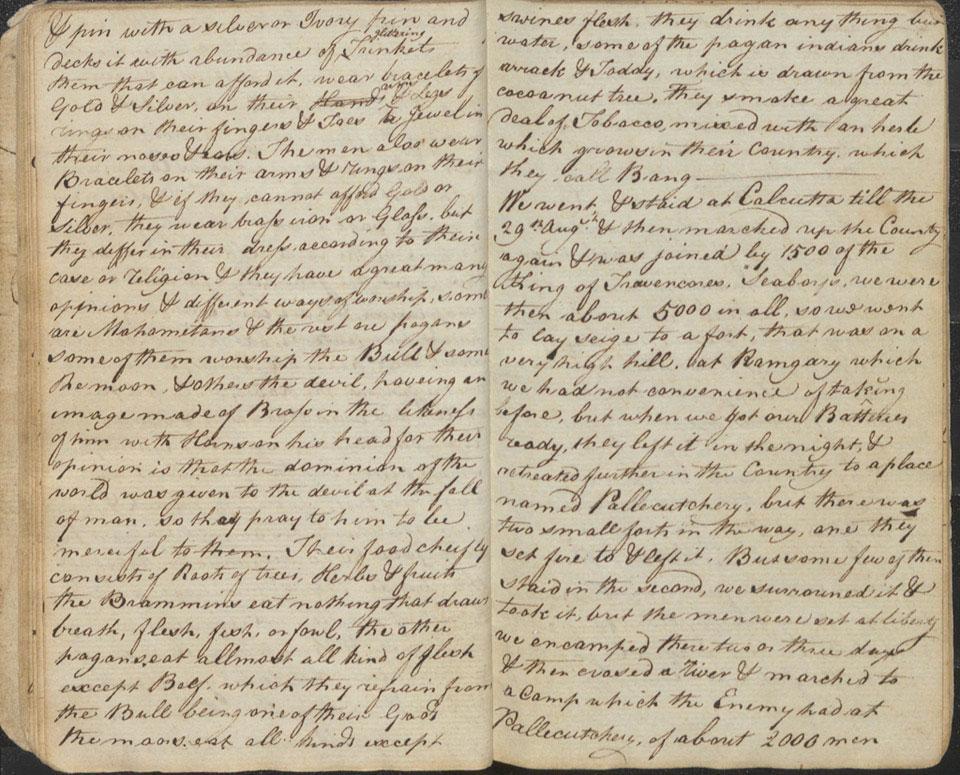 & pin with a silver or Ivory pin and
decks it with abundance of glittering Trinkets
them that can afford it, wear bracelets of
Gold & Silver, on their Hand arm & Legs
rings on their fingers & Toes & a Jewel in
their noses & ears. The men also wear
Bracelets on their arms & rings on their
fingers, & if they cannot afford Gold or
Silver, they wear brass iron or Glass. but
they differ in their dress, according to their
case or religion & they have a great many
opinions & different ways of worship, some
are Mahometans & the rest are pagans
some of them worship the Bull & some
the moon, & others the devil, haveing an
image made of Brass in the likeness
of him with Horns on his head for their
opinion is that the dominion of the
world was given to the devil at the fall
of man, so they pray to him to be
merciful to them. Their food cheifly
consists of Roots of trees, Herbs & fruits
the Brammins eat nothing that draws
breath, flesh, fish, or fowl, the other
pagans eat allmost all kind of flesh
except Beef. which they refrain from
the Bull being one of their Gods
the moors eat all kinds except
swines flesh. they drink any thing but
water, some of the pagan indians drink
arrack & Toddy, which is drawn from the
cocoa nut tree, they smoke a great
deal of Tobacco, mixed with an herb
which grows in their Country. which
they call Bang
We went & staid at Calcutta till the
29th Augst & then marched up the County
again & was joined by 1500 of the
King of Travencores, Seaboys, we were
then about 5000 in all, so we went
to lay seige to a fort, that was on a
very high hill, at Ramgary which
we had not convenience of taking
before, but when we got our Batteries
ready, they left it in the night, &
retreated further in the Country to a place
named Pallecutchery, but there was
two small forts in the way, one they
set fire to & left it. But some few of them
staid in the second, we surrouned it &
took it, but the men were set at liberty
we encamped there two or three days
& then crossed a river & marched to
a Camp which the Enemy had at
Pallecutchery, of about 2000 men